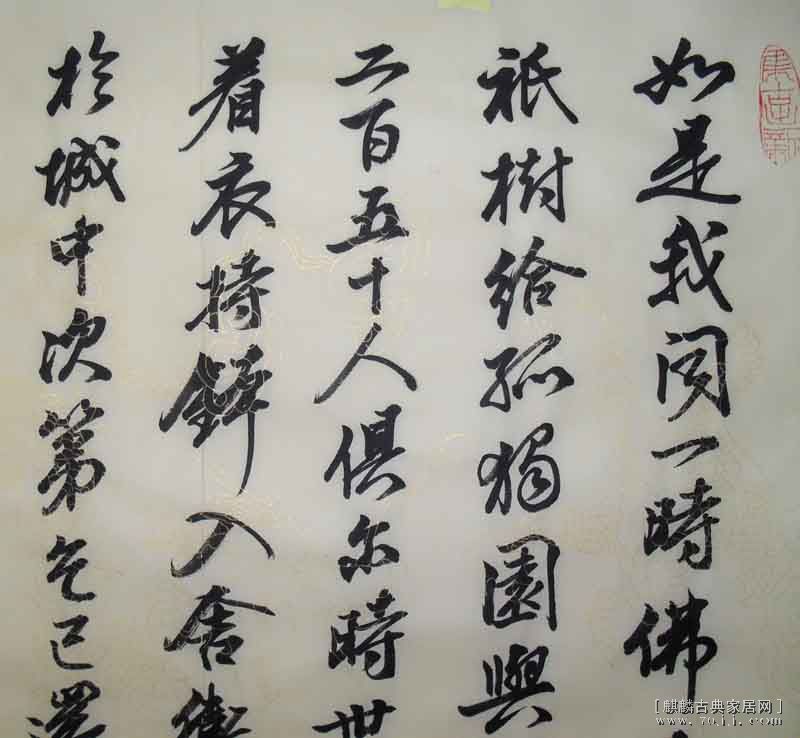 如是我闻一時佛
祇樹给孤獨園與
二百五十人俱尔時世
着衣持鉢入舍衛
於城中次第乞已還
[麒麟古典家居网]
www.70jj.com